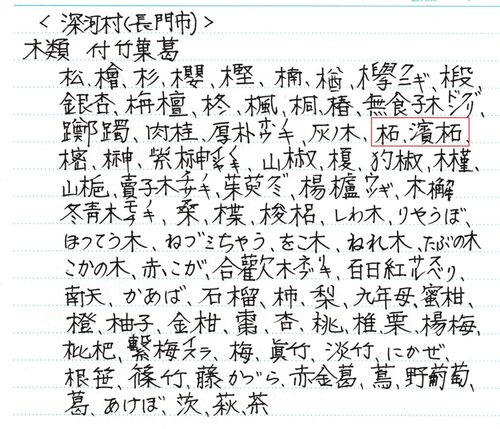 ＜深河村(長門市)＞
木類 付竹菓葛
松、檜、杉、櫻、樫、楠、楢、橡クニギ、椴、
銀杏、梅檀、柊、楓、桐、椿、無食子木ドングリ、
躑躅、肉桂、厚朴、灰ノ木、柘、濱柘、
樒、榊、柴榊、山椒、榎、豹椒、木槿、
山梔、賣子木、茱萸グミ、楊櫨ウツギ、木檞
冬青木、桑、楪、梭梠、しわ木、りやうぼ、
ほってう木、ねづミちゃう、をこ木、ねれ木、たぶの木
こかの木、赤こが、合歡木、百日紅サルスベリ、
南天、かあば、石榴、柿、梨、九年母、蜜柑、
橙、柚子、金柑、棗、杏、桃、椎、栗、楊梅、
枇杷、繋梅イスラ、梅、眞竹、淡竹、にかぜ、
根笹、篠竹、藤かづら、赤金葛、蔦、野葡萄、
葛、あけぼ、茨、萩、茶